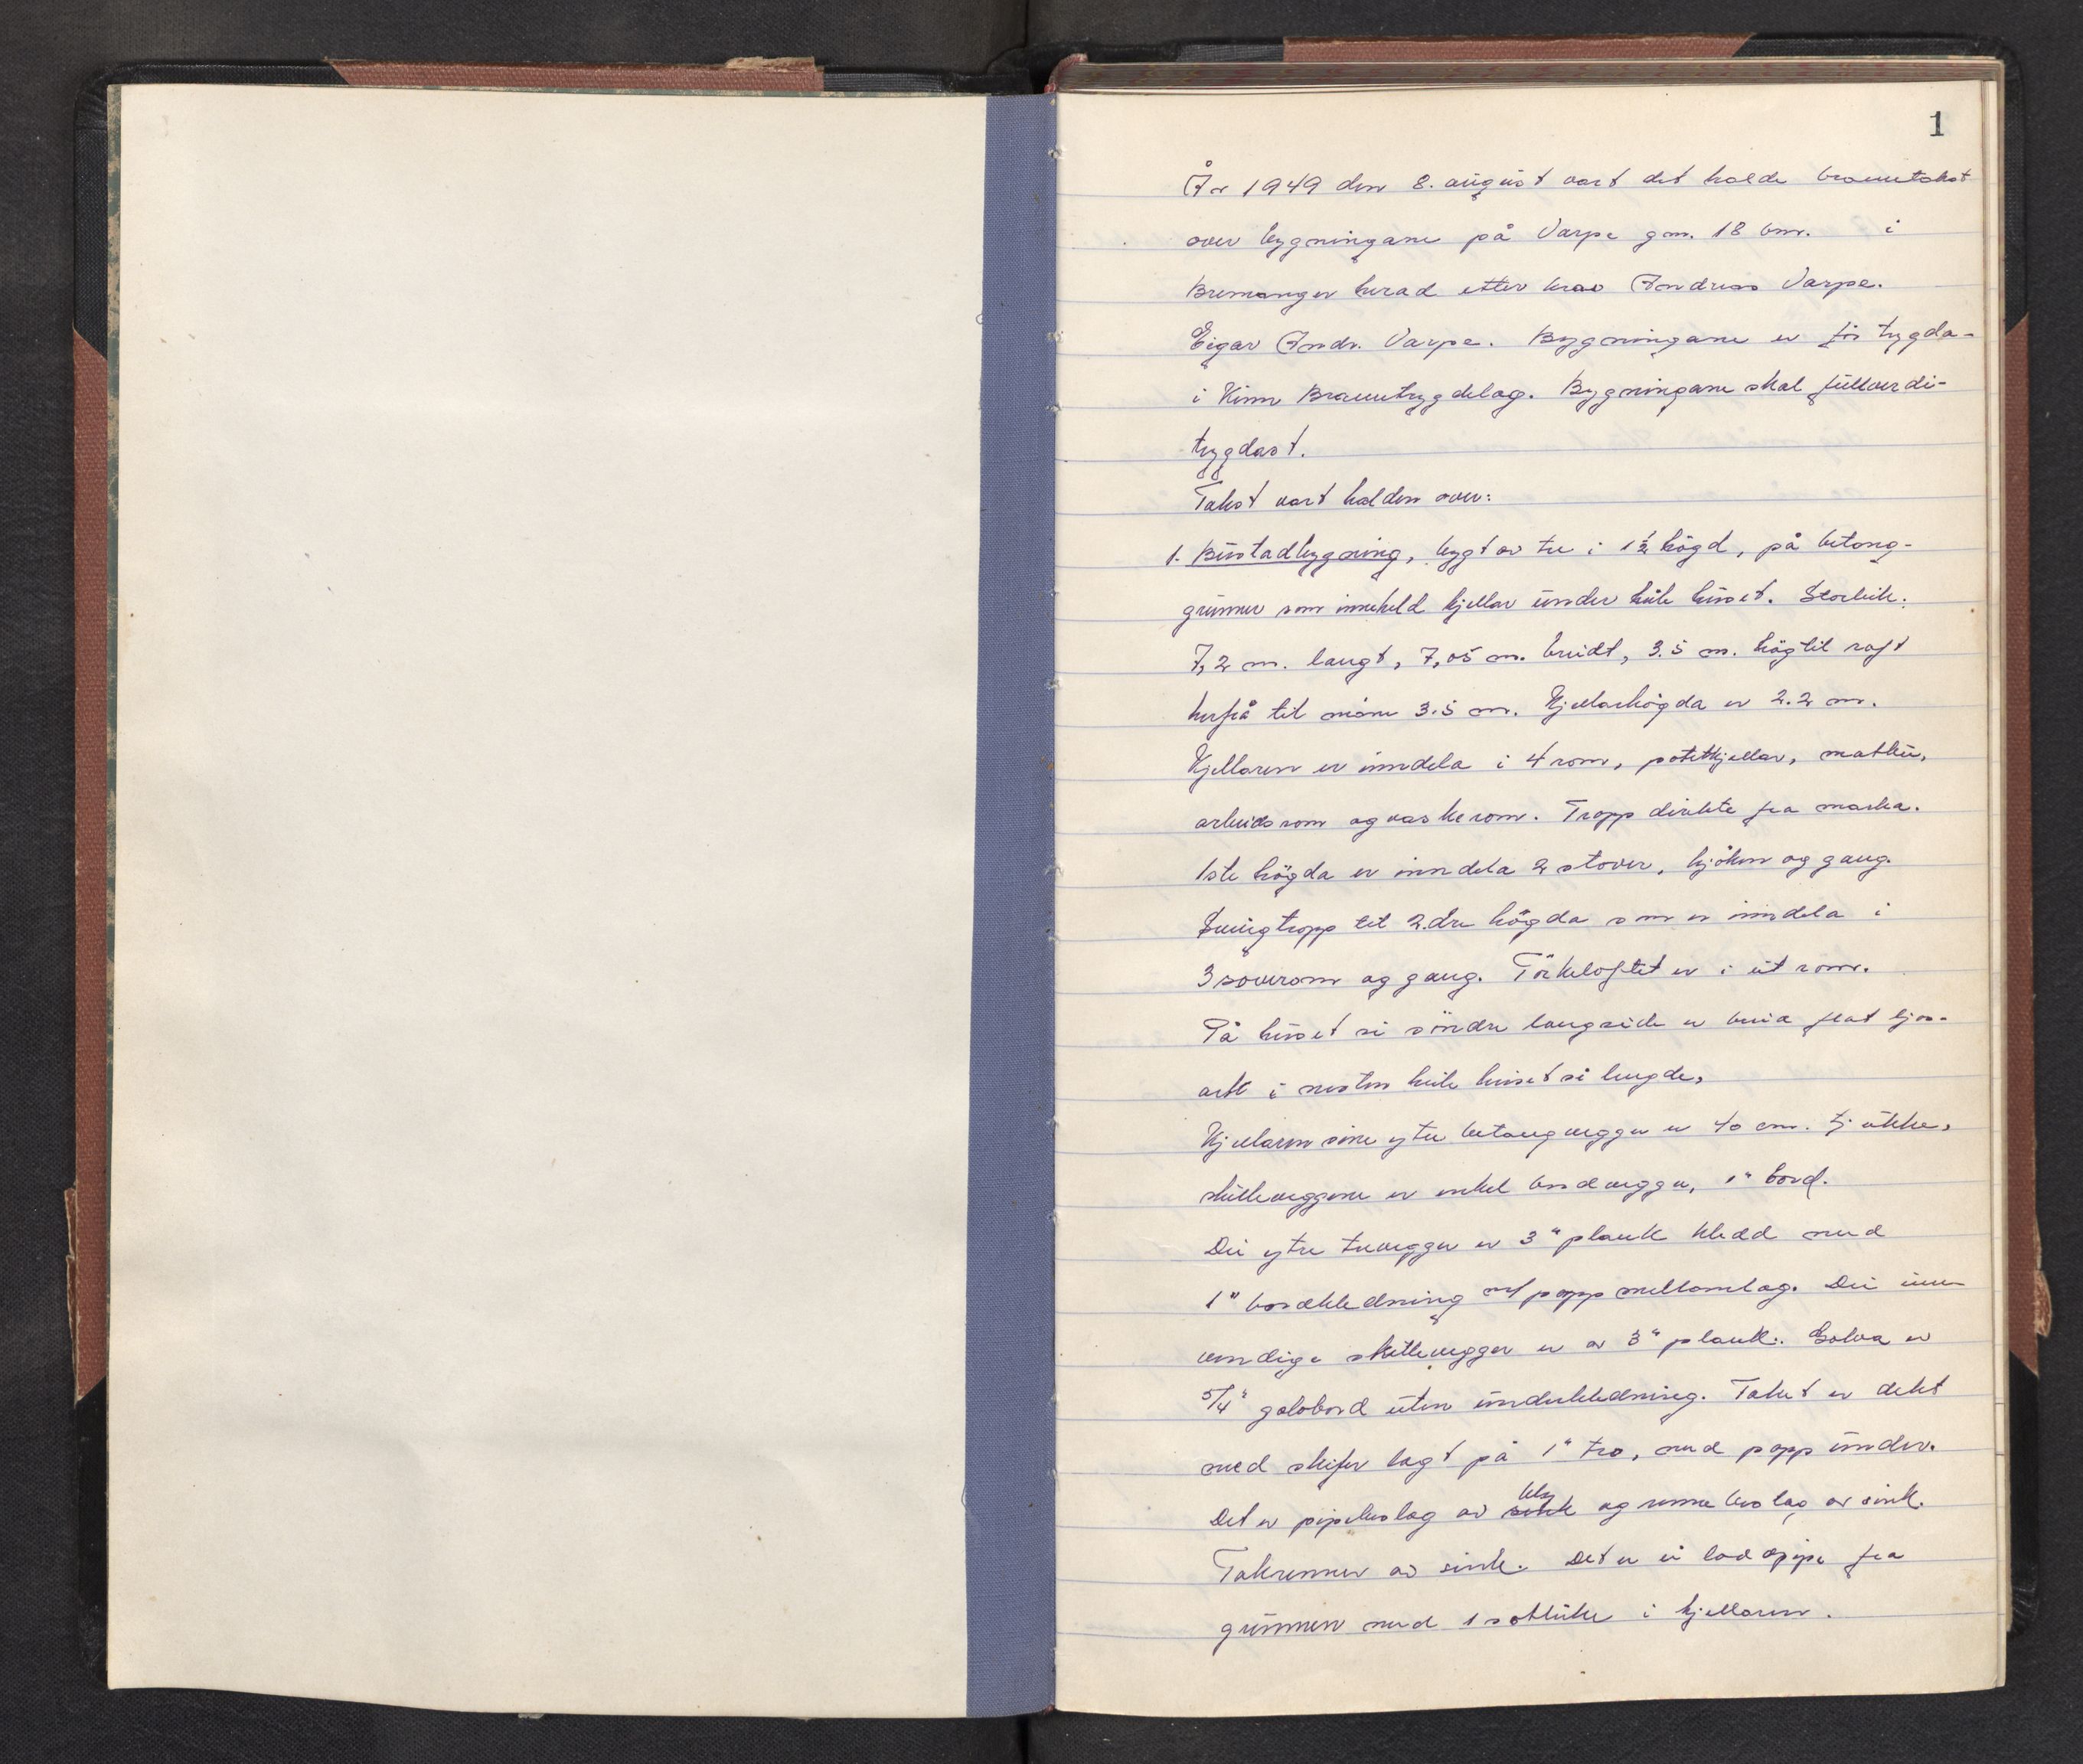 1
År 1949 den 8. august vart det halde branntakst
over bygningane på Varpe gnr. 18 bnr. i
Bremanger herad etter krav Andreas Varpe.
Eigar Andr. Varpe. Bygningane er før trygda
i Kinn Branntrygdelag. Bygningane skal fullverdi-
trygdast.
Takst vart halden over:
1. Bustadbygning, bygt av tre i 1½ høgd, på betong-
grunnur som inneheld kjellar under heile huset. Storleik:
7,2 m. langt, 7,05 m. breidt, 3.5 m. høg til raft
herfrå til møne 3.5 m. Kjellarhøgda er 2.2 m.
Kjellaren er inndela i 4 rom, potetkjellar, matbu,
arbeidsrom og vaskerom. Tropp direkte fra marka.
1ste högda er inndela 2 stover, kjøken og gang.
Svingtropp til 2.dre högda som er inndela i
3 soverom og gang. Törkeloftet er i eit rom.
På huset si söndre langside er breia flat ljos-
ark i nesten heile huset si lengde,
Kjellaren sine ytre betongvegger er 40 cm. tjukke,
skilleveggene er enkel bordvegger, 1" bord.
Dei ytre trevegger er 3" plank kledd med
1" bordkledning m/ papp mellomlag. Dei inn-
vendige skillevegger er av 3" plank. Golva er
5/4" golvbord uten underkledning. Taket er dekt
med skifer lagt på 1" tro, med papp under.
Det er pipebeslag av sink bly og renne beslag av sink.
Takrenner av sink. Det er ei laddpipe fra
grunnen med 1 sotluke i kjellaren.